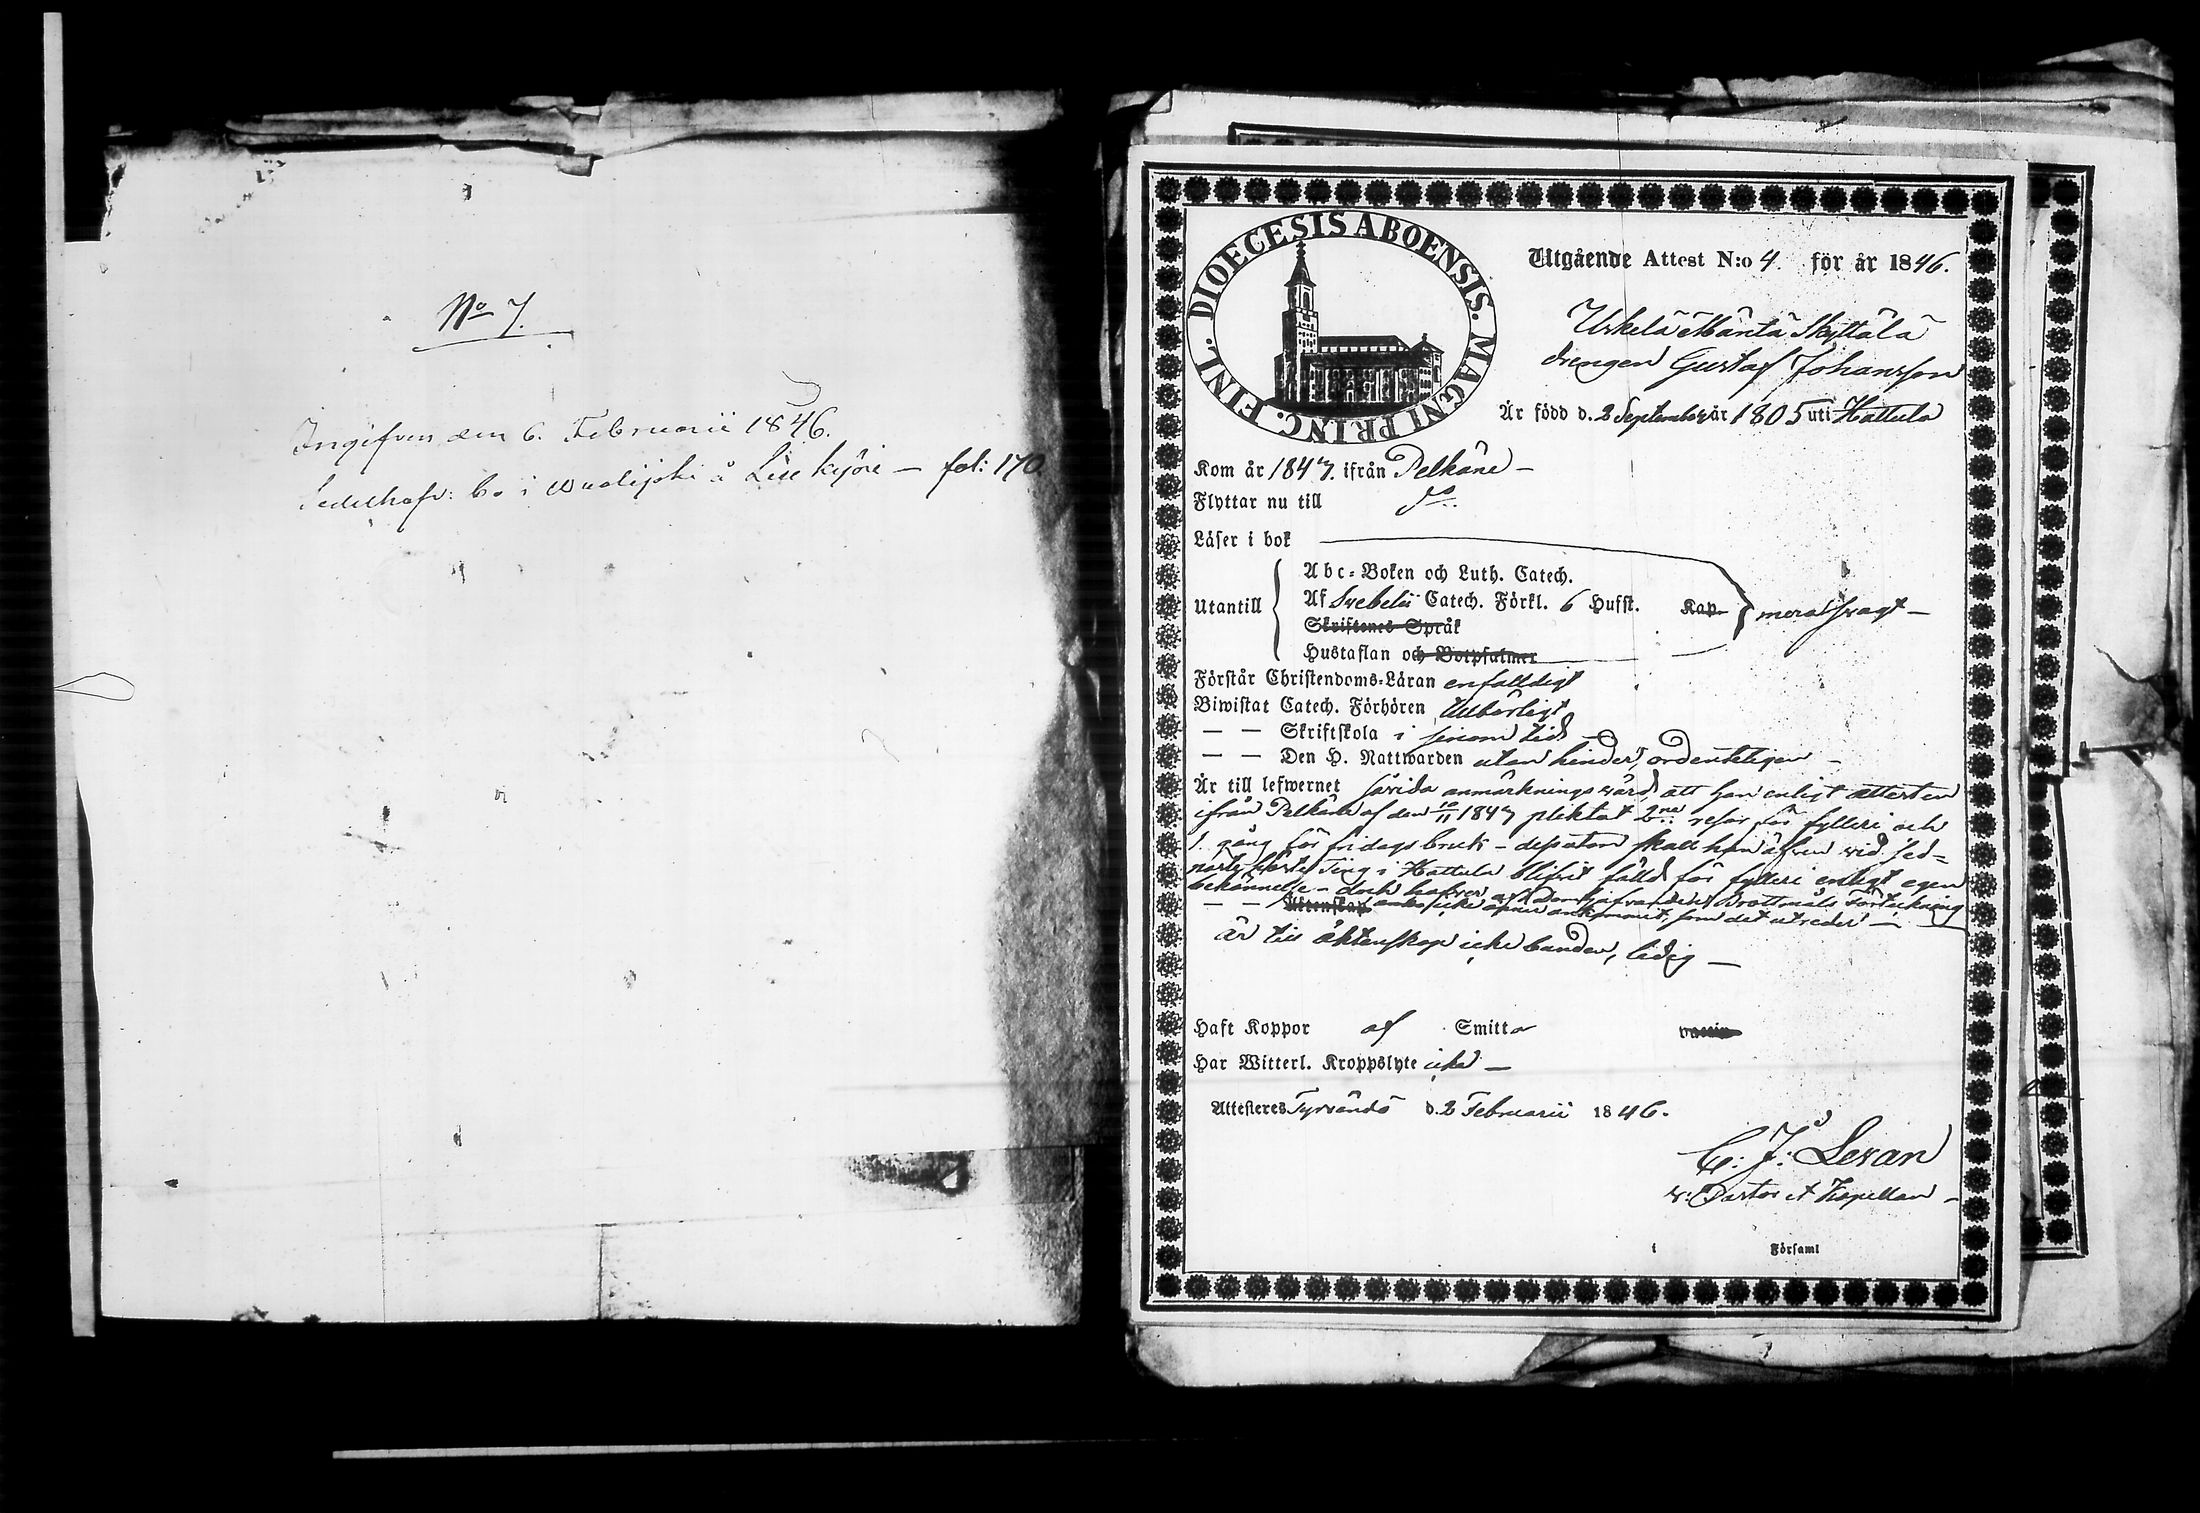 No 7.
Ingifven den 6. Februarii 1846.
Sedelhafv: bo i å fol: 170
DIOECESIS ABOENSIS. MAGNI PRINC. FINL.
Utgående Attest N:o 4. för år 1846.
Urkela Mäntä Skyttälä
drengen Gustaf Johansson
Är född d. 2 September år 1805 uti Hattula
Kom år 1843. ifrån Pelkäne –
Flyttar nu till do.
Läser i bok
Abc-Boken och Luth. Catech.
Utantill Af Svebelii Catech. Förkl. 6 Hufst. Kap. svagt –
Skriftenes Språk
Hustaflan och Botpsalmer
Förstår Christendoms-Läran enfalldigt
Biwistat Catech. Förhören
— — Skriftskola i sinom tid –
— — Den H. Nattwarden utan hinder, ordenteligen –
Är till lefwernet såvida anmärkningsvärd att han enligt attesten
ifrån Pelkäne af den 10/11 1843 pliktat 2ne resor för fylleri och
1 gång för fridagsbrott – dessutom skall han äfven vid sed-
naste Ting i Hattula blifvit fälld för fylleri enligt egen
bekännelse – dock Brottmåls Förteckning
— — Äktenskap icke ännu ankommit, som det utreder –
är till äktenskap icke bunden, ledig —
Haft Koppor af Smitta vaccin
Har Witterl. Kroppslyte icke —
Attesteres Tyrvändö d. 2 Februarii 1846.
C: J: Levan
v: Pastor et Kapellan –
i Församl